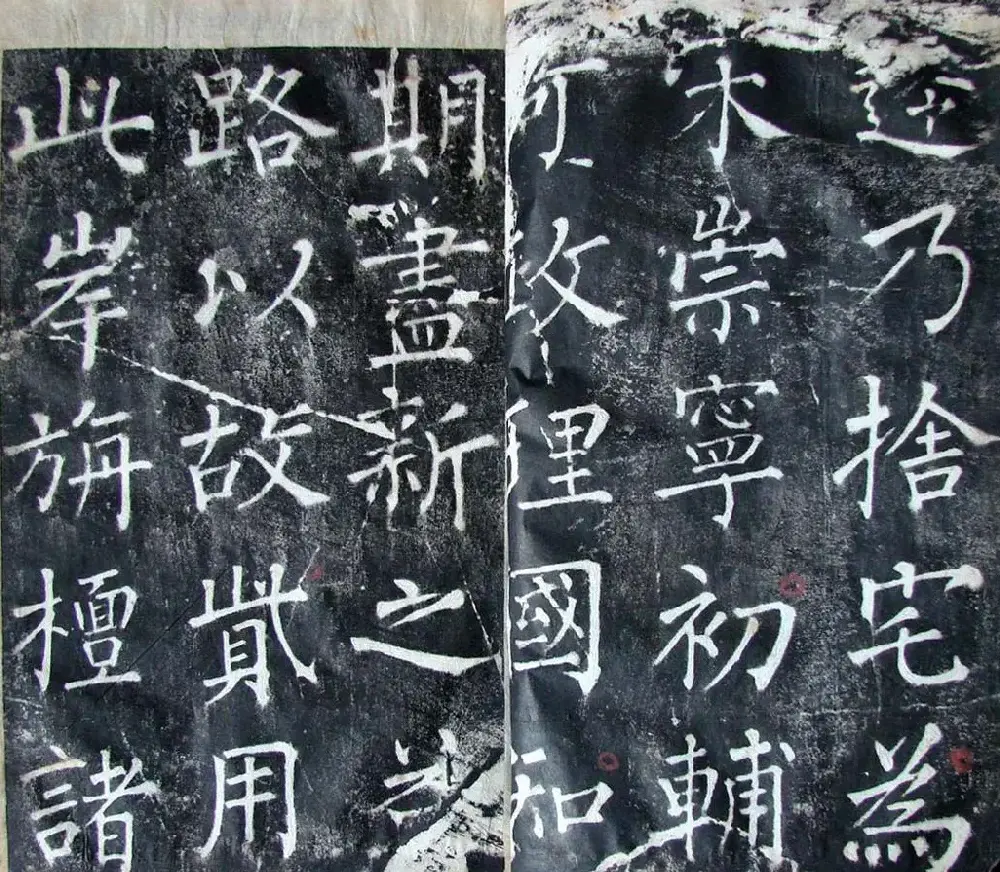 乃捨宅為
宋崇寧初輔
理國知
期盡新之
路以故貲用
此岸旃檀諸